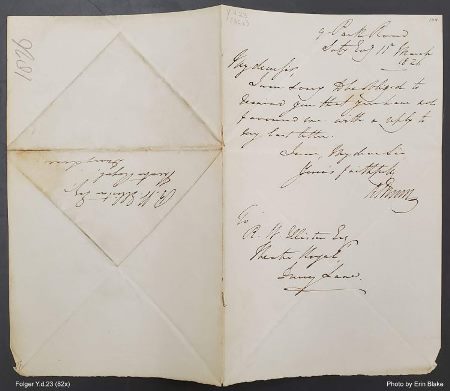 9281
R. W. Elliston Esq
Theatre Royal
Drury Lane
Y.d.23
9 Park Road
Saty Evg 15 March
My dear Sir,
I am sorry to be obliged to
remind you that you have not
favoured me with a reply to
my last letter.
I am, My dear Sir
Yours faithfully
To
R. W. Elliston Esq
Theatre Royal
Drury Lane.
Folger Y.d.23 (82x)
Photo by Erin Blake